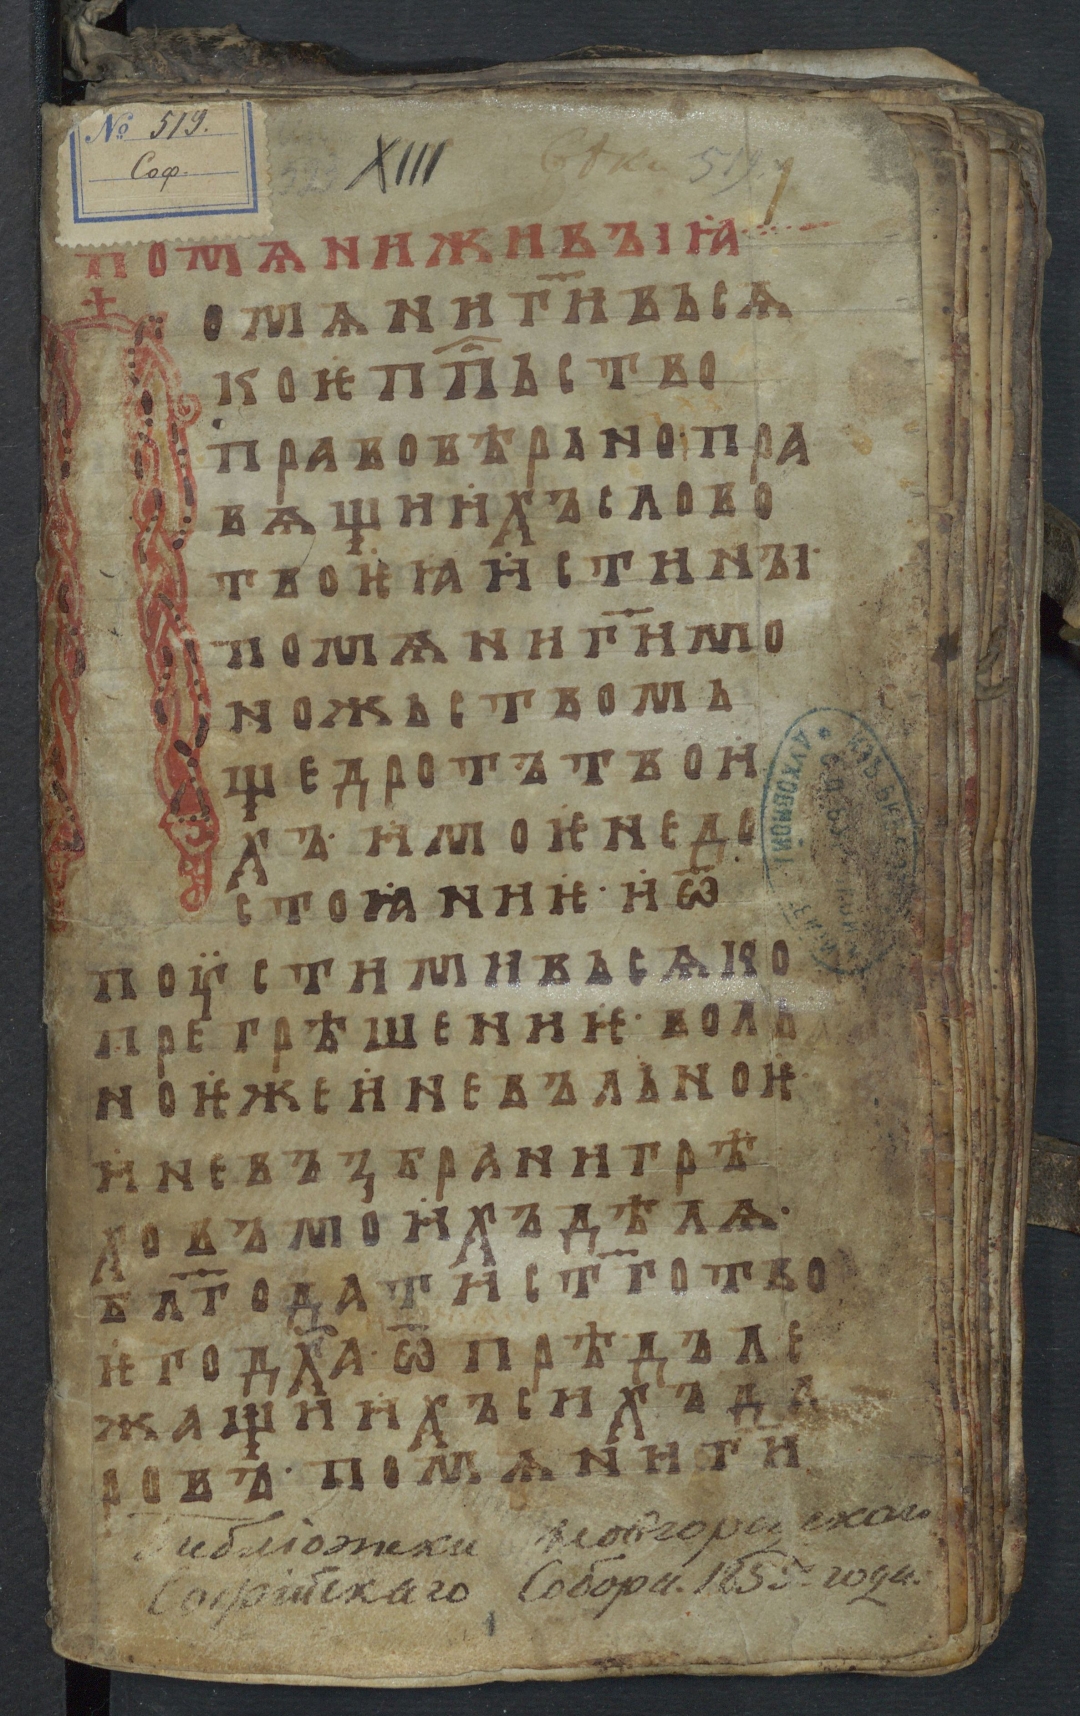 № 519.
Соф.
XIII
519.
ПОМѦНИЖИВЪІꙖ
ПОМѦНИГ҃ИВЬСѦ
КОѤПП҃ЬСТВО
ПРАВОВѢРЬНО·ПРА
ВѦЩИИХЪСЛОВО
ТВОѤꙖИСТИНЪІ·
ПОМѦНИГ҃ИМО
НОЖЬСТВОМЬ
ЩЕДРОТЪТВОИ
ХЪ·ИМОѤНЕДО
СТОꙖНИѤ·ИѾ
ПОУСТИМИВЬСѦКО
ПРЕГРѢШЕНИѤ·ВОЛЬ
НОѤЖЕИНЕВЪЛЬНОѤ
ИНЕВЪЗБРАНИГРѢ
ХОВЪМОИХЪДѢЛѦ·
БЛГ҃ОДАТИСТ҃ГОТВО
ѤГОДХ҃А·ѾПРѢДЪЛЕ
ЖАЩИИХЪСИХЪДА
РОВЪ·ПОМѦНИГ҃И
Библіотеки Новгородскаго
Софійскаго Собора. года.